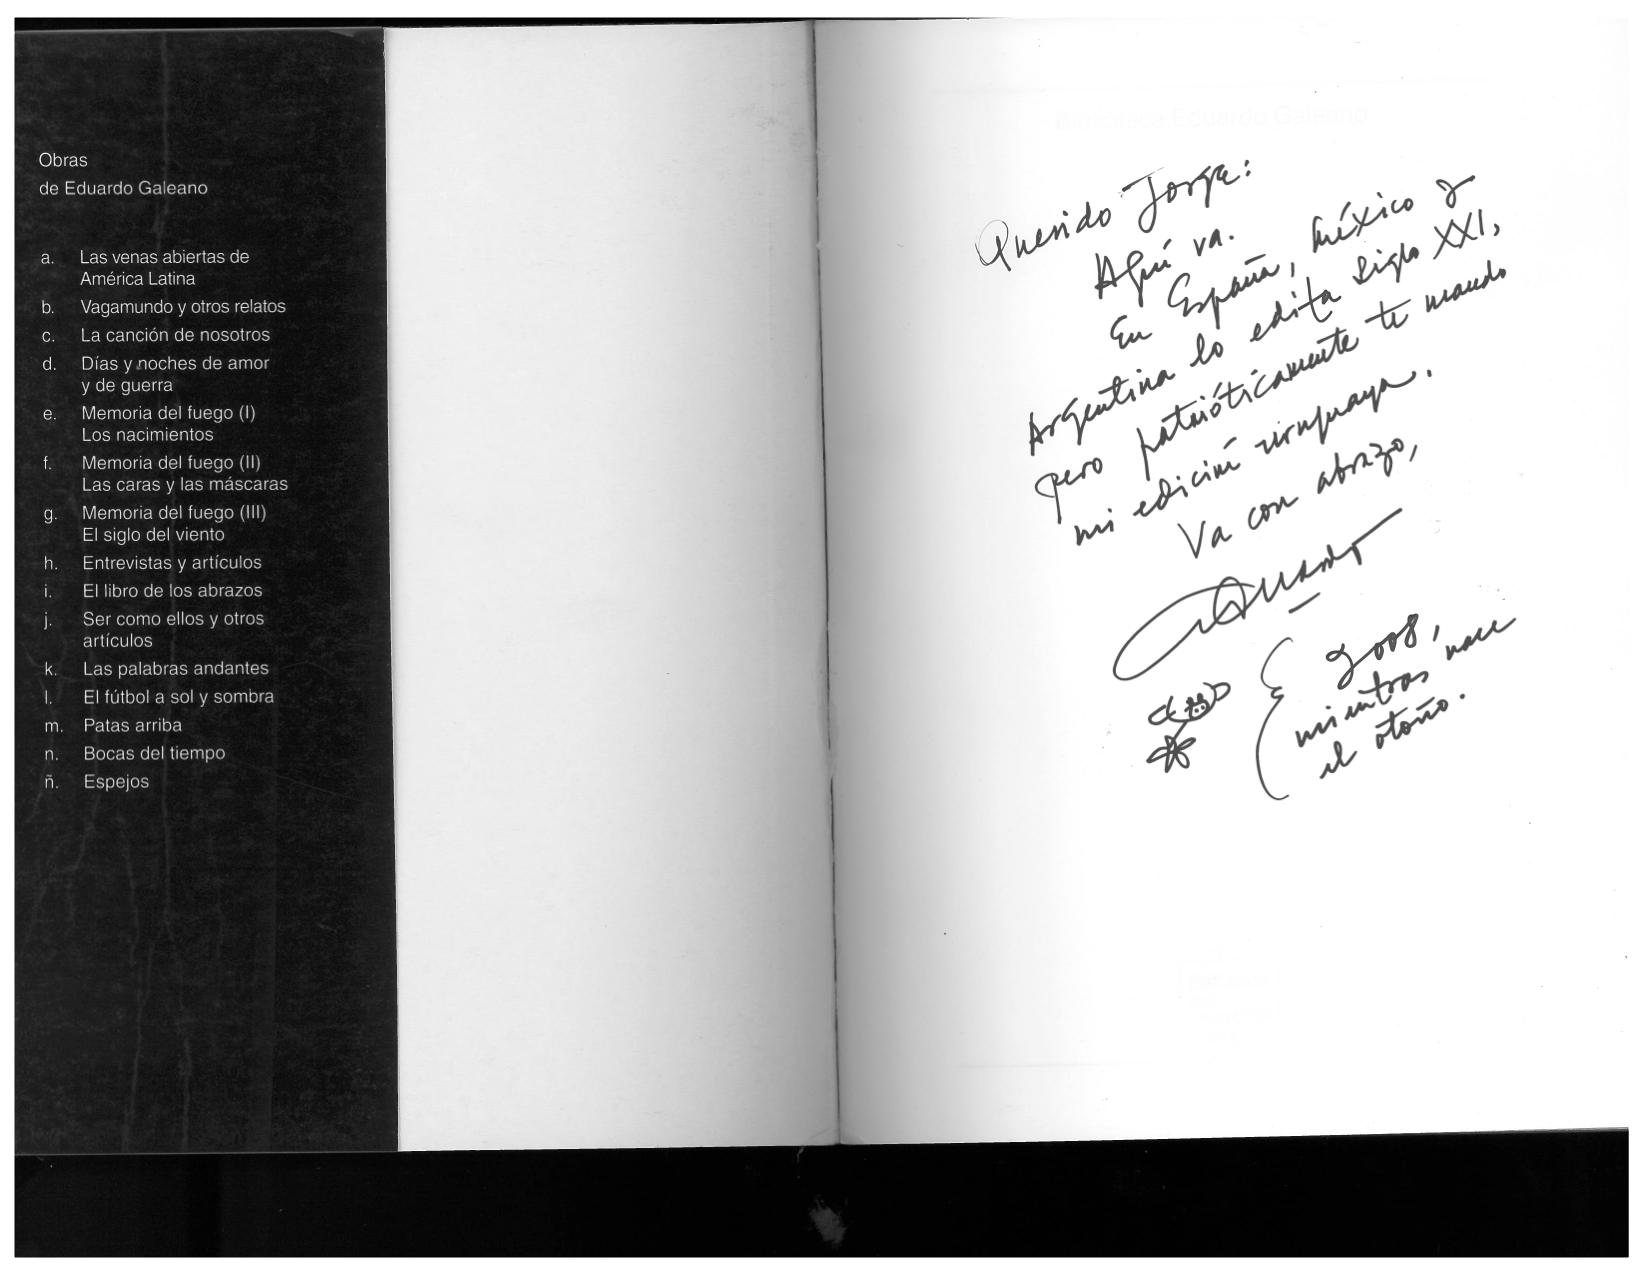 Obras
de Eduardo Galeano
a. Las venas abiertas de
América Latina
b. Vagamundo y otros relatos
c. La canción de nosotros
d. Días y noches de amor
y de guerra
e. Memoria del fuego (I)
Los nacimientos
f. Memoria del fuego (II)
Las caras y las máscaras
g. Memoria del fuego (III)
El siglo del viento
h. Entrevistas y artículos
i. El libro de los abrazos
j. Ser como ellos y otros
artículos
k. Las palabras andantes
l. El fútbol a sol y sombra
m. Patas arriba
n. Bocas del tiempo
ñ. Espejos
Biblioteca Eduardo Galeano
Querido Jorge:
Aquí va.
En España, México y
Argentina lo edita Siglo XXI,
pero patrióticamente te mando
mi edición uruguaya.
Va con abrazo,
2008,
mientras nace
el otoño.